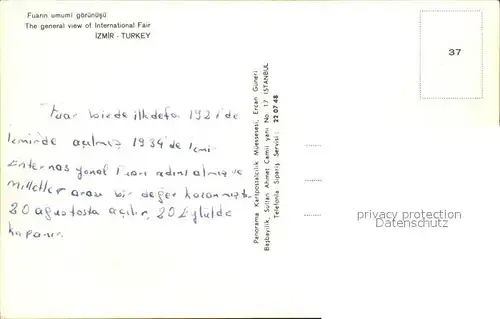 Fuarın umumî görünüşü
The general view of International Fair
İZMİR - TURKEY
37
Fuar bizde ilkdefa 1921'de
izmirde açılmış 1934'de izmi
Enternasyonal Fuarı adını almış ve
milletler arası bir değer kazanmıştı
20 ağustosta açılır, 20 Eylülde
kapanır.
Panorama Kartpostalcılık Müessesesi, Ercan Güneri
Başbayilik, Sultan Ahmet Camii yanı No. 17 İSTANBUL
Telefonla Sipariş Servisi: 22 07 48
privacy protection
Datenschutz